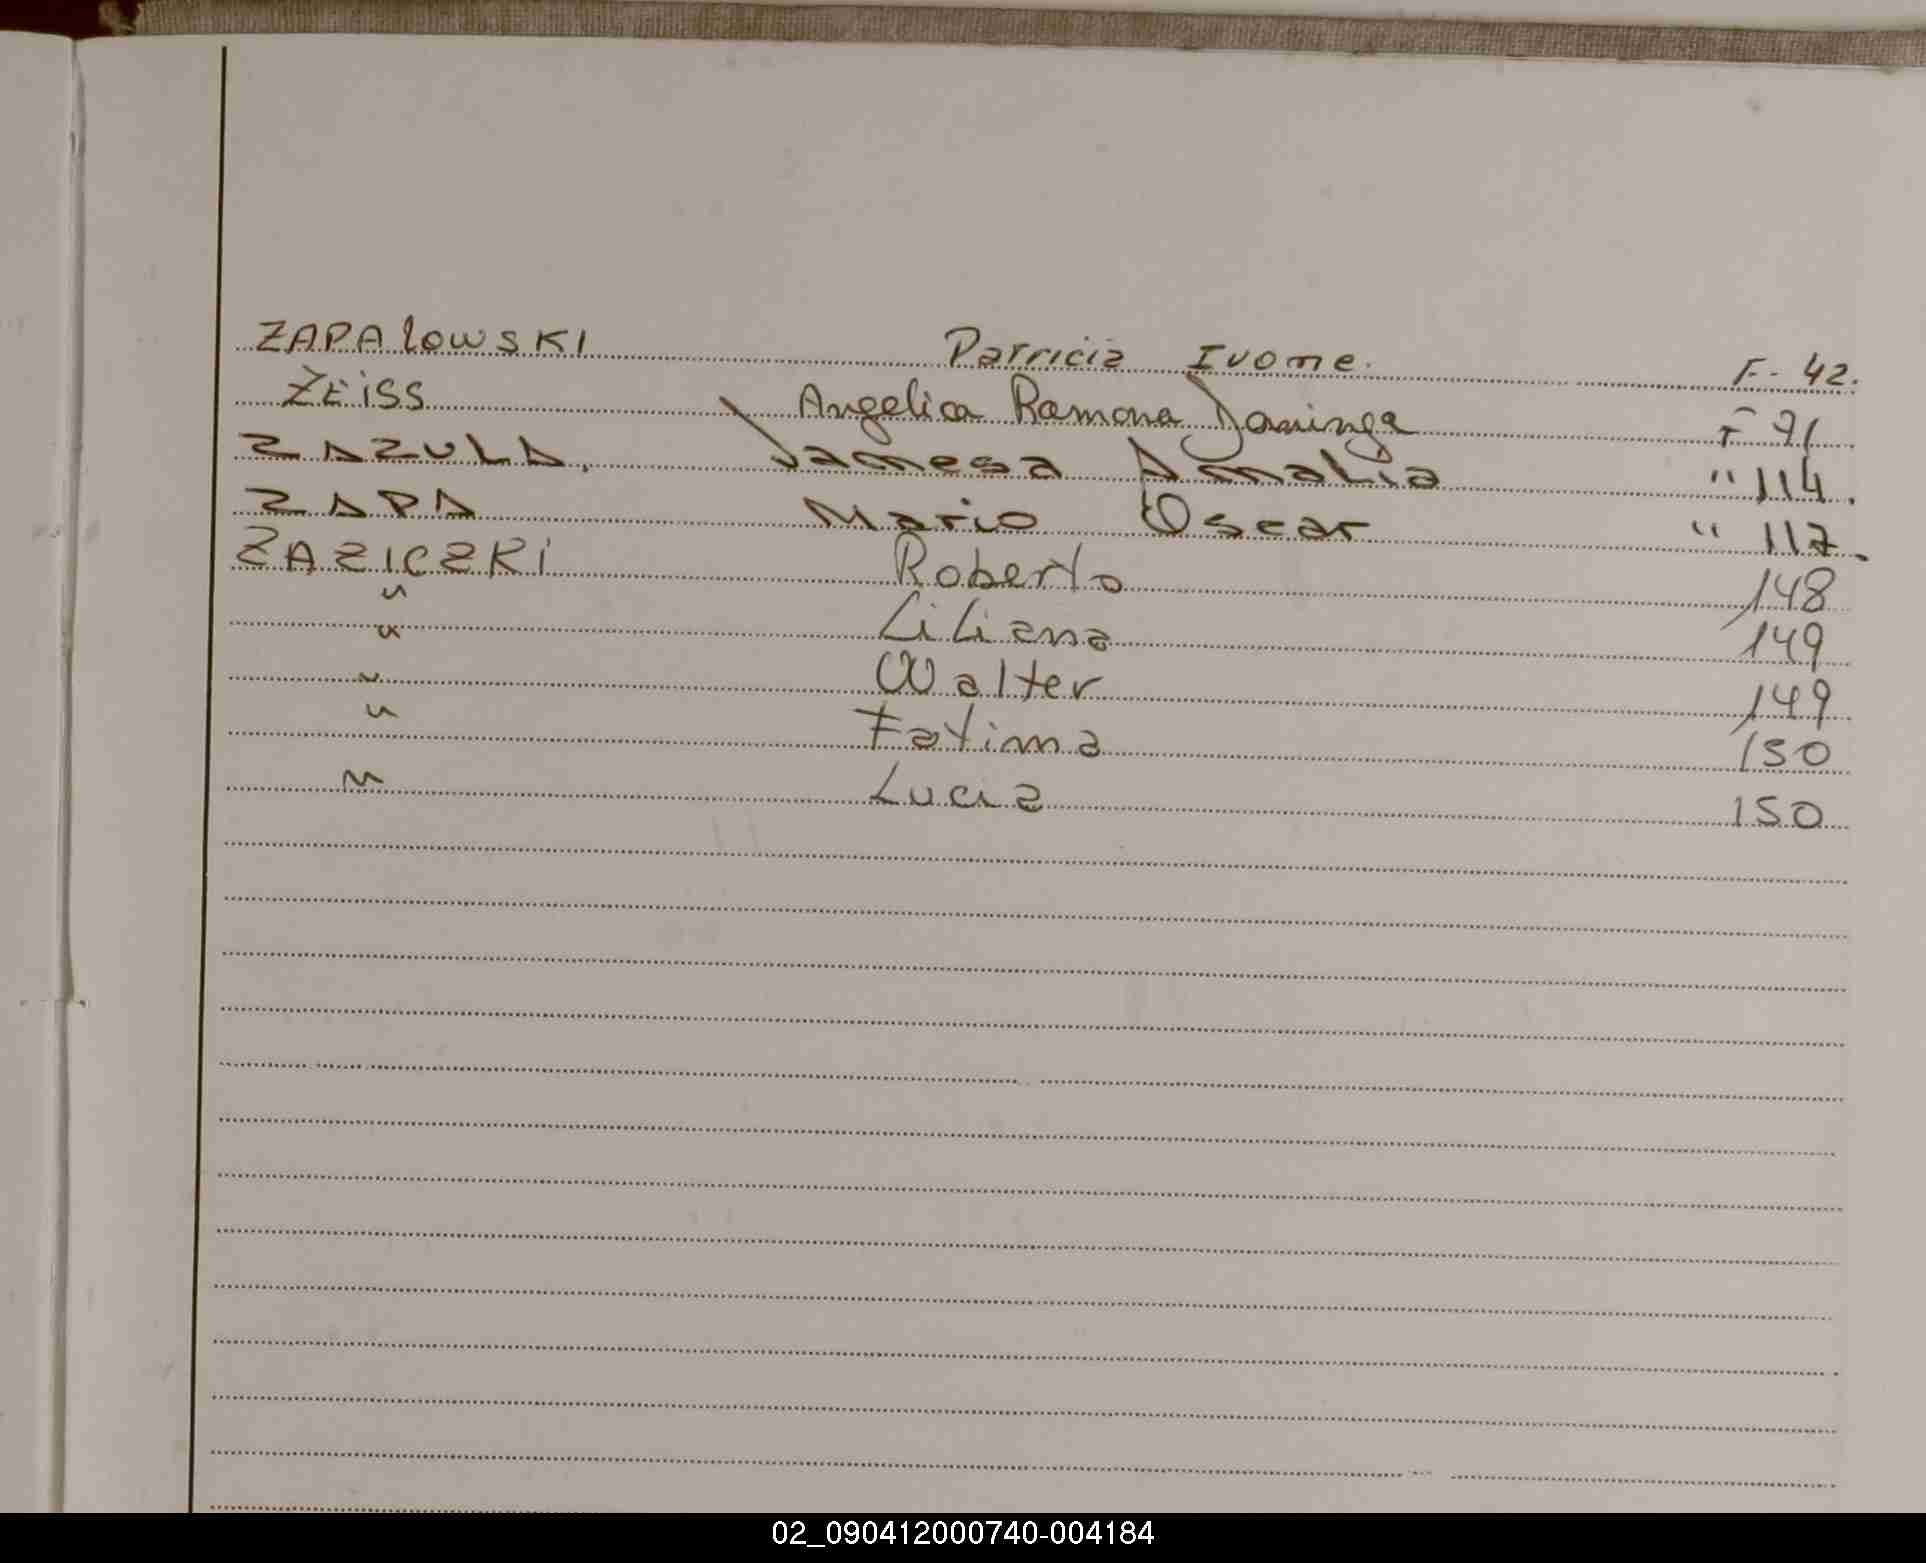 ZAPAlOWSKI Patricia Ivone. F. 42.
ZEiSS Angelica Ramona Dominga F 71
ZAZULA, Vanesa Amalia " 114.
ZAPA Mario Oscar " 117.
ZAZICZKi Roberto 148
" " Liliana 149
" Walter 149
" Fatima 150
" Lucia 150
02_090412000740-004184